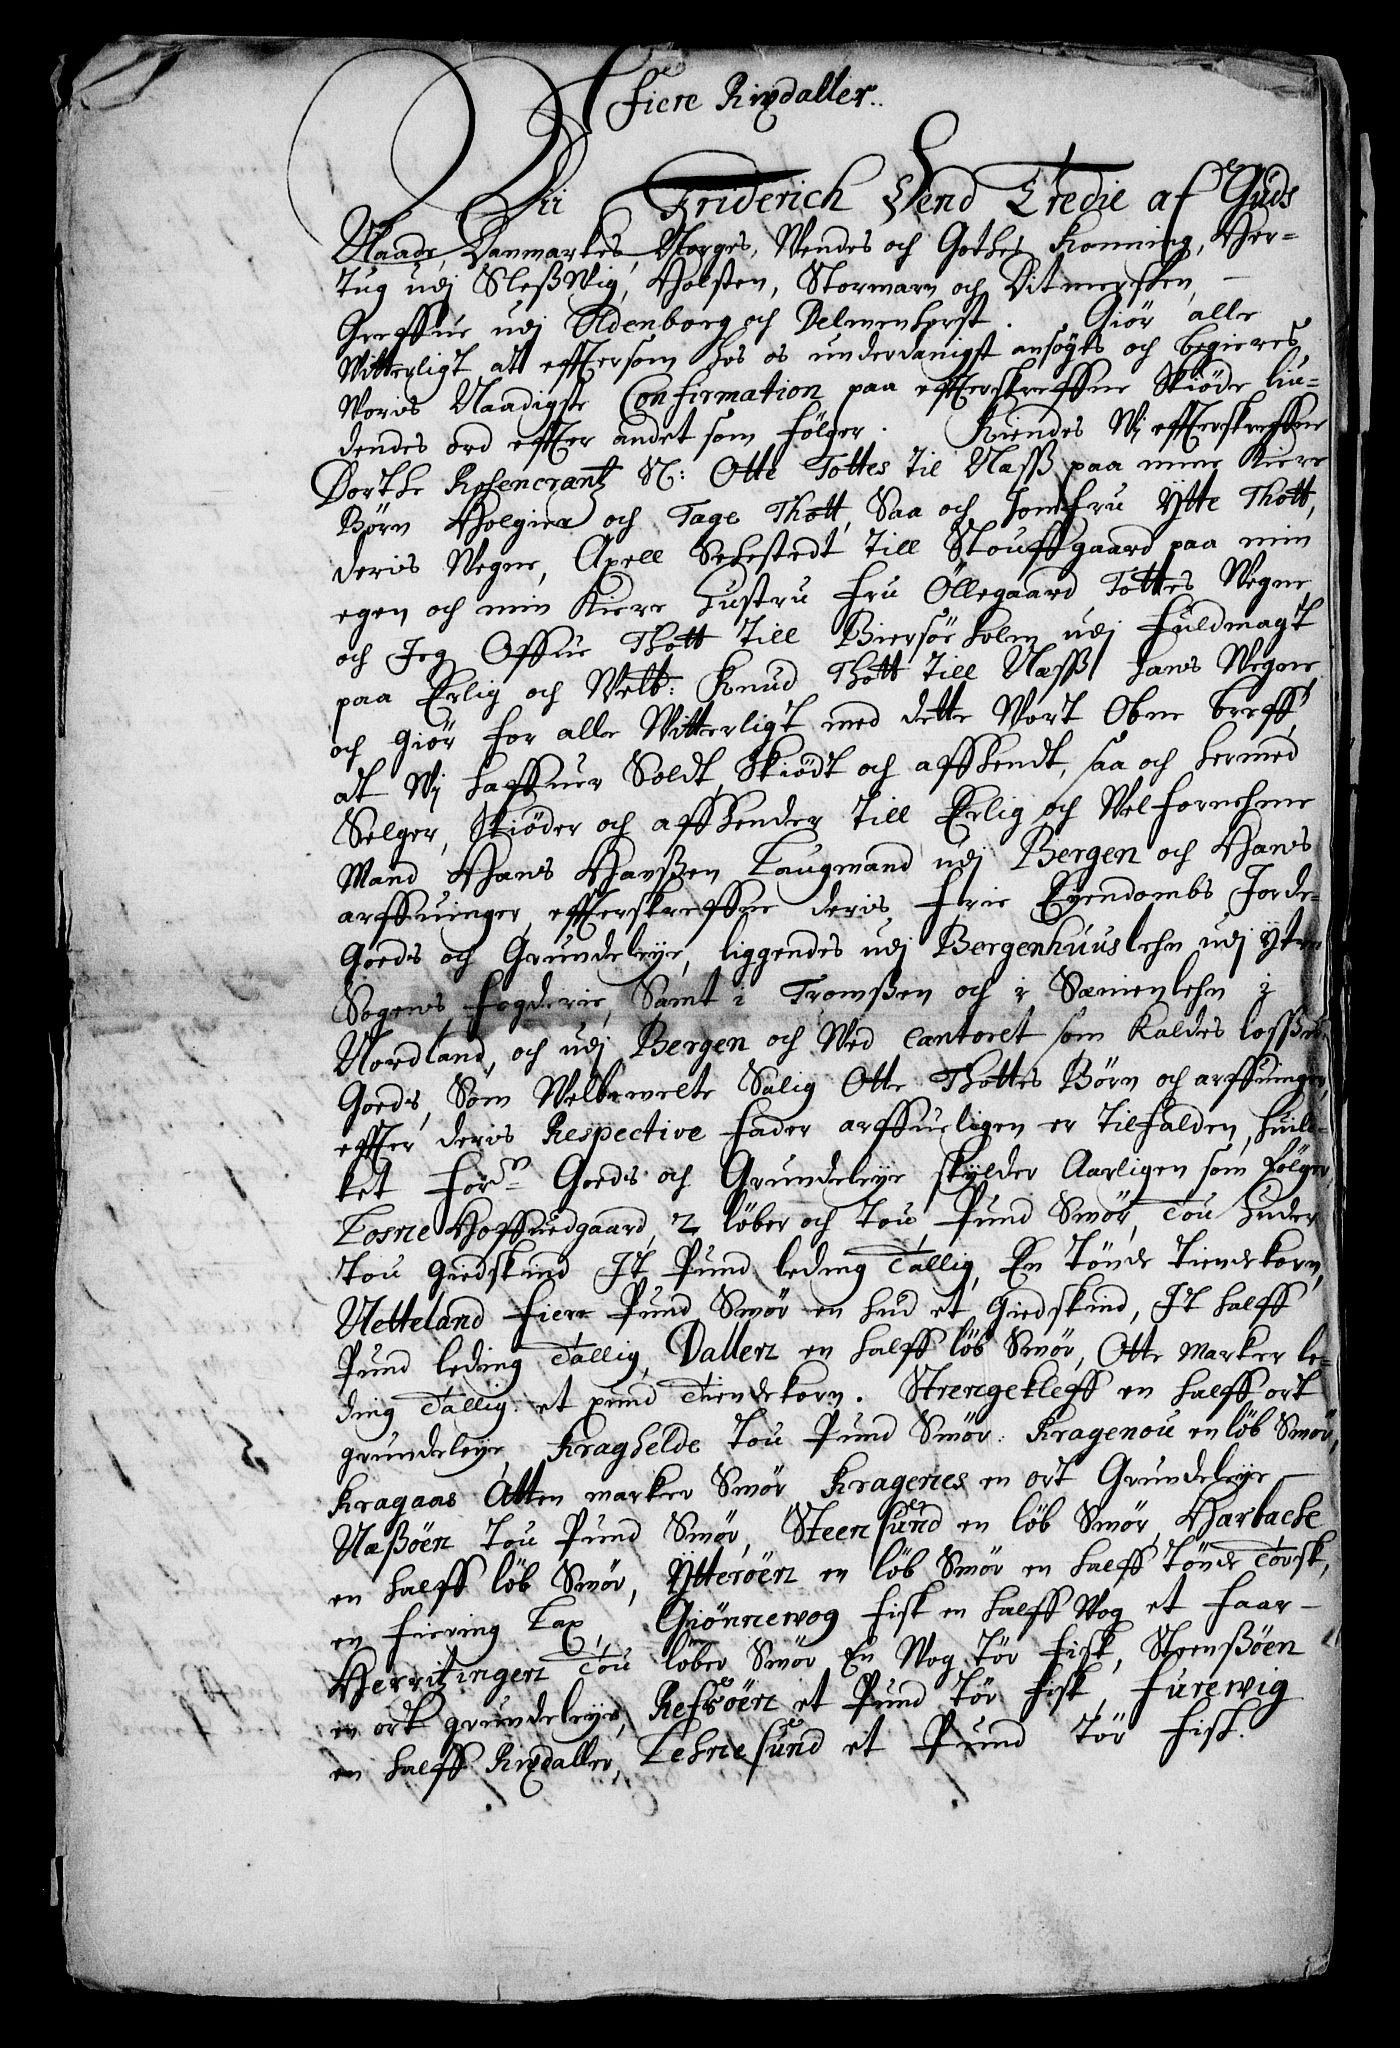 Fiere Rixdaller..
Vii Friderich Dend Tredie af Guds
Naade, Danmarkes, Norges, Wendes och Gothes Konning, Her-
tug udj Sleßwig, Holsten, Stormarn och Ditmersken,
Greffue udj Oldenborg och Delmenhorst. Giör alle
Witterligt at effttersom hos os underdanigst ansögts och begieres
Woris Naadigste Confirmation paa effterskreffne Skiöde liu-
dendes ord effter andet som fölger. Kiendes Wj effterskreffne
Dorthe Rosencrantz Sl: Otte Tottes til Næss paa mine Kiere
Börn Holgier och Tage Thott, Saa och Jomfru Ytte Thott,
deris Wegne, Axell Sehestedt till Stouffgaard paa min
egen och min Kiere Hustru fru Öllegaard Tottes Wegne
och Jeg Offue Thott till Biersöeholm udj fuldmagt
paa Erlig och Welb: Knud Thott till Næss hans Wegne
och giör for alle Witterligt med dette Wort Obne breff,
at Wj haffuer Soldt, Skiödt och affhendt, saa och hermed
Selger, Skiöder och affhender till Erlig och Welfornehme
Mand Hans Hanßen Laugmand udj Bergen och Hans
arffuinger, effterskreffne deris frie Eyendombs Jorde-
Goeds och Grundeleye, liggendes udj Bergenhuuslehn udj Ytre
Sogens fogderie, Samt i Tromßen och i Sænienlehn i
Nordland, och udj Bergen och Wed Cantoret som Kaldes losßne
Goeds, Som Welbemelte Salig Otte Thottes Börn och arffuinger,
effter deris Respective fader arffueligen er tilfalden, huil-
ket fordn Goeds och Grundeleye skylder Aarligen som fölger
Losne Hoffuedgaard, 2 löber och tou Pund Smör, tou huder
tou giedskind It Pund leding Tallig, En tönde tiendekorn,
Netteland fiere Pund Smör en hud et giedskind, It halff
Pund leding Tallig, Dallen en halff löb Smör, Otte marker le-
ding Tallig: et pund Tiendekorn. Strengekleff en halff ort
grundeleye, Kraghelde tou Pund Smör: Kragenou en löb Smör,
Kragaas Atten marker Smör Kragenes en ort Grundeleye
Næßöen tou Pund Smör, Steensund en löb Smör, Harbache
en halff löb Smör, Ytteröen en löb Smör en halff tönde Torsk,
en fiering Lax, Giönnewog fisk en halff Wog et faar
Herritzingen Tou löber Smör En Wog tör fisk, Steensöen
en ort grundeleye, Refsöen et Pund tör fisk, Furewig
en halff Rixdaller, Lehnesund et Pund tör fisk.